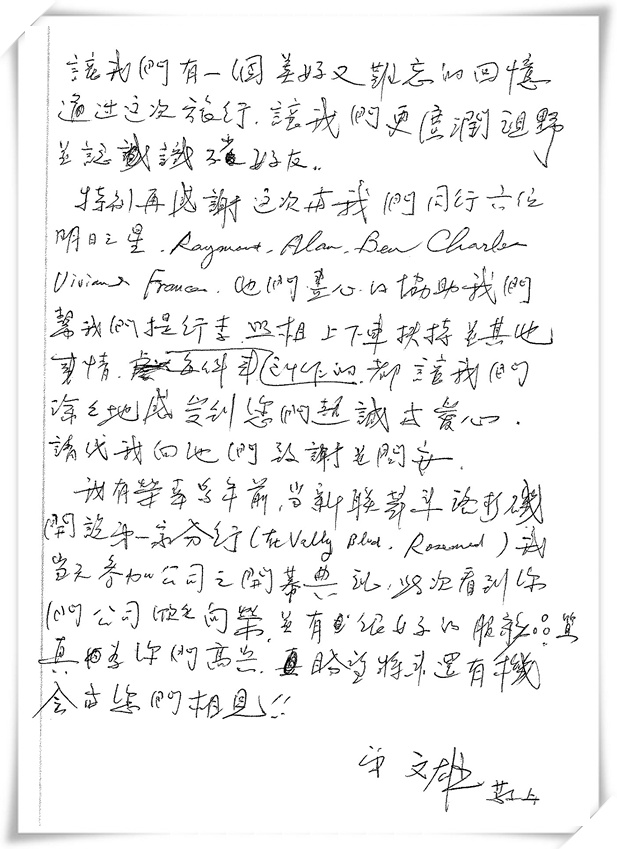 讓我們有一個美好又難忘的回憶
通过这次旅行. 讓我們更廣濶視野
並認識不少好友..
特别再感謝这次与我們同行六位
明日之星. Raymond, Alan, Ben Charles
Vivian Frances. 他們盡心的協助我們
幫我們提行李 照相 上下車 扶持並其他
事情. 每件事 所作的. 都讓我們
深之地感受到您們的誠与愛心.
請代我向他們致謝並問安.
我有榮幸多年前, 当新聯莊來洛杉磯
開設第一家分行 (在 Vally Blvd. Rosemead) 我
当天参加公司之開幕典礼, 此次看到你
們公司欣之向榮, 並有很好的服務品質
真為你們高兴. 真盼望将来還有機
会与您們相見!!
文雄 敬上